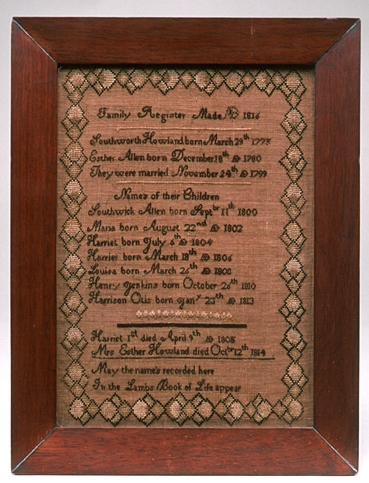 Family Register Made AD 1816
Southworth Howland born March 29th 1775
Esther Allen born December 18th AD 1780
They were married November 24th AD 1799
Names of their Children
Southwick Allen born Septbr 11th 1800
Maria born August 22nd AD 1802
Harriet born July 6th AD 1804
Harriet born March 18th AD 1806
Louisa born March 26th AD 1808
Henry Jenkins born October 26th 1810
Harrison Otis born Jany 25th AD 1813
Harriet 1st died April 9th AD 1805
Mrs Esther Howland died Octbr 12th 1814
May the name's recorded here
In the Lambs Book of Life appear